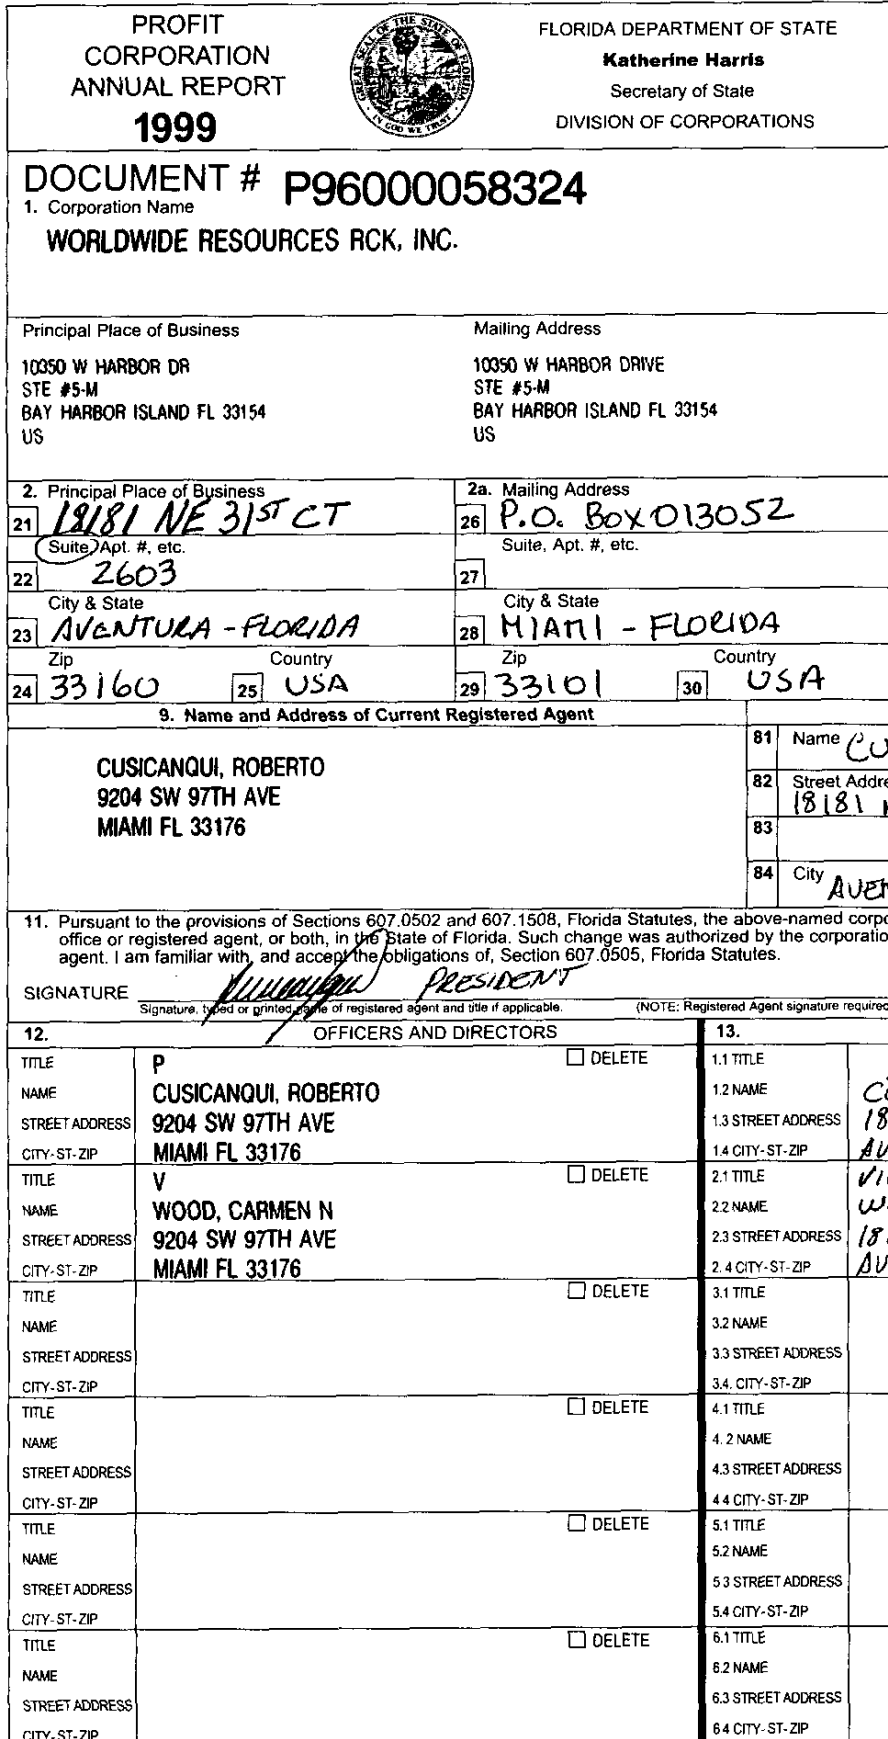 PROFIT
CORPORATION
ANNUAL REPORT
1999
GREAT SEAL OF THE STATE OF FLORIDA
IN GOD WE TRUST
FLORIDA DEPARTMENT OF STATE
Katherine Harris
Secretary of State
DIVISION OF CORPORATIONS
DOCUMENT # P96000058324
1. Corporation Name
WORLDWIDE RESOURCES RCK, INC.
Principal Place of Business
10350 W HARBOR DR
STE #5-M
BAY HARBOR ISLAND FL 33154
US
Mailing Address
10350 W HARBOR DRIVE
STE #5-M
BAY HARBOR ISLAND FL 33154
US
2. Principal Place of Business
21 18181 NE 31ST CT
Suite, Apt. #, etc.
22 2603
City & State
23 AVENTURA - FLORIDA
Zip Country
24 33160 25 USA
2a. Mailing Address
26 P.O. BOX 013052
Suite, Apt. #, etc.
27
City & State
28 MIAMI - FLORIDA
Zip Country
29 33101 30 USA
9. Name and Address of Current Registered Agent
CUSICANQUI, ROBERTO
9204 SW 97TH AVE
MIAMI FL 33176
81 Name CU
82 Street Addre
18181 N
83
84 City AVEN
11. Pursuant to the provisions of Sections 607.0502 and 607.1508, Florida Statutes, the above-named corpo
office or registered agent, or both, in the State of Florida. Such change was authorized by the corporatio
agent. I am familiar with, and accept the obligations of, Section 607.0505, Florida Statutes.
SIGNATURE PRESIDENT
Signature, typed or printed name of registered agent and title if applicable. (NOTE: Registered Agent signature required
12. OFFICERS AND DIRECTORS 13.
TITLE P DELETE
NAME CUSICANQUI, ROBERTO
STREET ADDRESS 9204 SW 97TH AVE
CITY-ST-ZIP MIAMI FL 33176
TITLE V DELETE
NAME WOOD, CARMEN N
STREET ADDRESS 9204 SW 97TH AVE
CITY-ST-ZIP MIAMI FL 33176
TITLE DELETE
NAME
STREET ADDRESS
CITY-ST-ZIP
TITLE DELETE
NAME
STREET ADDRESS
CITY-ST-ZIP
TITLE DELETE
NAME
STREET ADDRESS
CITY-ST-ZIP
TITLE DELETE
NAME
STREET ADDRESS
CITY-ST-ZIP
1.1 TITLE
1.2 NAME CU
1.3 STREET ADDRESS 18
1.4 CITY-ST-ZIP AV
2.1 TITLE VI
2.2 NAME W
2.3 STREET ADDRESS 18
2.4 CITY-ST-ZIP AV
3.1 TITLE
3.2 NAME
3.3 STREET ADDRESS
3.4. CITY-ST-ZIP
4.1 TITLE
4.2 NAME
4.3 STREET ADDRESS
4 4 CITY-ST-ZIP
5.1 TITLE
5.2 NAME
5 3 STREET ADDRESS
5.4 CITY-ST-ZIP
6.1 TITLE
6.2 NAME
6.3 STREET ADDRESS
6 4 CITY-ST-ZIP